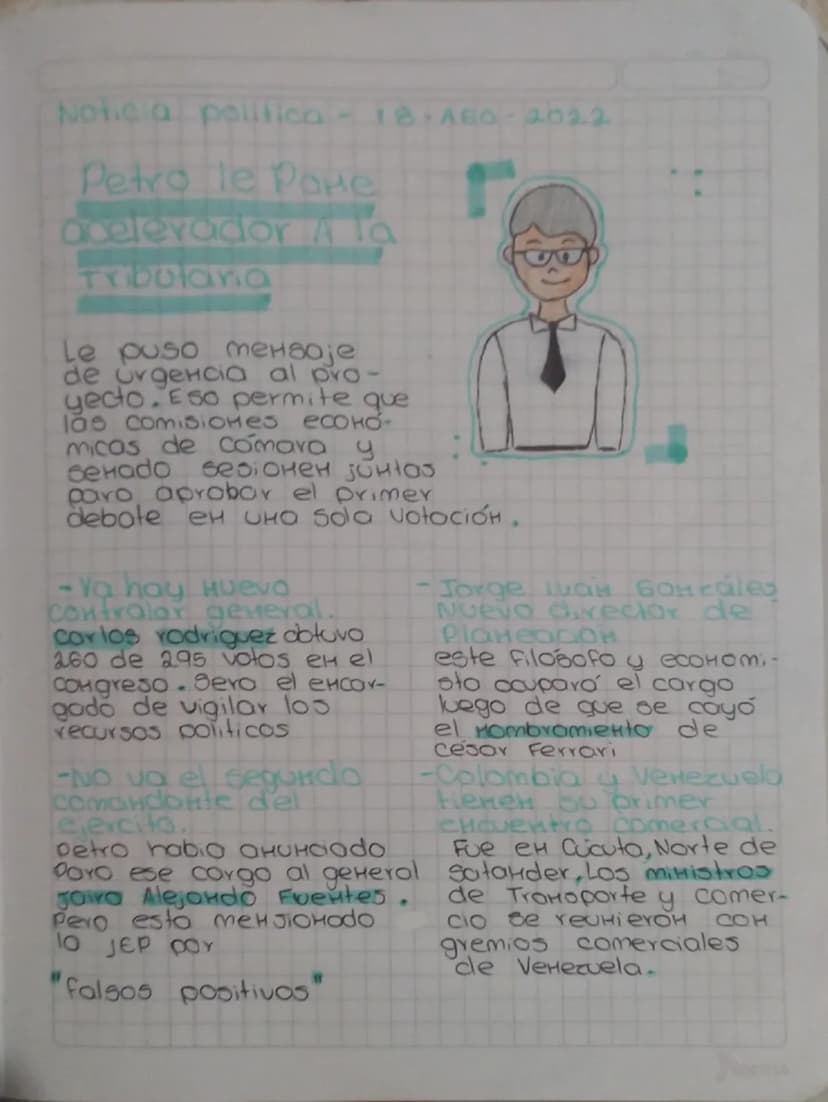 Noticia política - 18 - AGO - 2022
Petro le Pone
acelerador A la
Tributaria
Le puso mensaje
de urgencia al pro-
yecto. Eso permite que
las comisiones econó-
micas de cámara y
senado sesionen juntas
para aprobar el primer
debate en una sola votación.
- Ya hay nuevo
contralor general.
carlos rodriguez obtuvo
260 de 295 votos en el
congreso. Sera el encar-
gado de vigilar los
recursos politicos
- No va el segundo
comandante del
ejercito.
petro habia anunciado
para ese cargo al general
Jairo Alejando Fuentes.
Pero esta mensionado
la JEP por
"falsos positivos"
- Jorge Iván Gonzáles
Nuevo director de
Planeación
este filósofo y economi-
sta ocupará el cargo
luego de que se cayó
el nombramiento de
césar Ferrari
- Colombia y Venezuela
tienen su primer
encuentro comercial.
Fue en Cúcuta, Norte de
Satander, Los ministros
de Transporte y comer-
cio se reunieron con
gremios comerciales
de Venezuela.